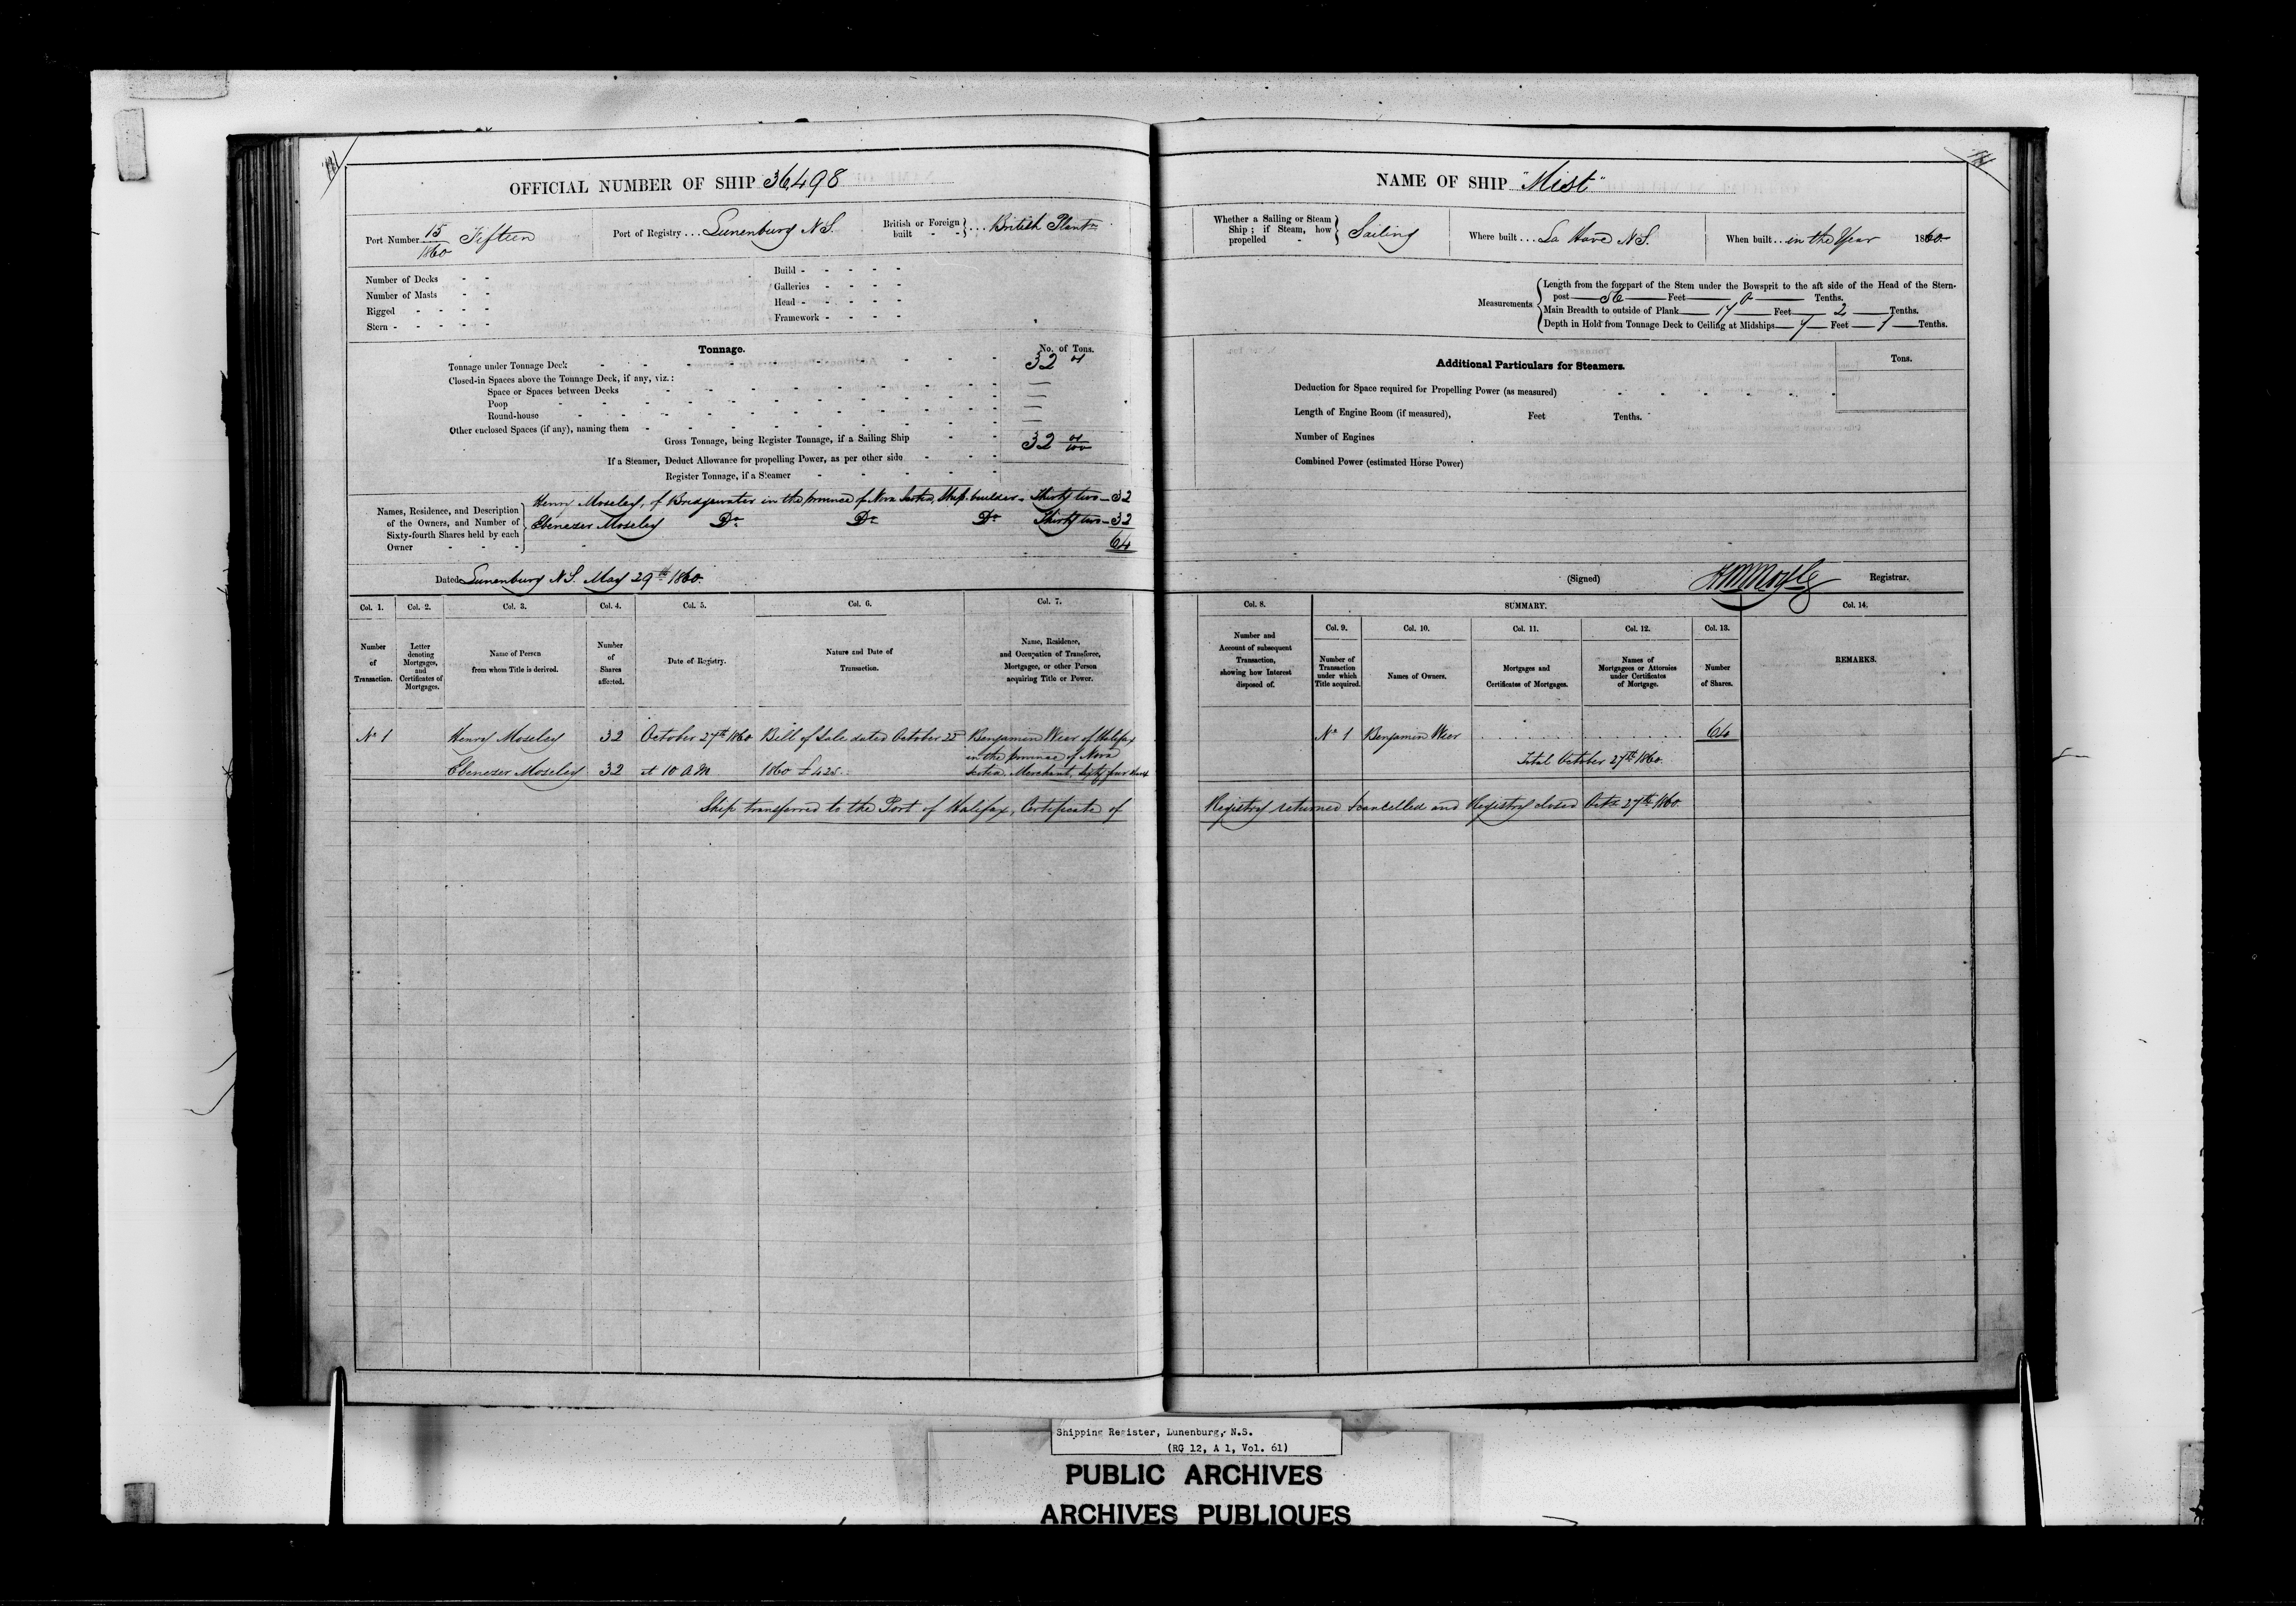 OFFICIAL NUMBER OF SHIP 36498
Port Number 15/1860 Fifteen
Port of Registry ... Lunenburg N.S.
British or Foreign built } ... British Plantn
Number of Decks
Number of Masts
Rigged
Stern
Build
Galleries
Head
Framework
Tonnage.
No. of Tons.
Tonnage under Tonnage Deck 32
Closed-in Spaces above the Tonnage Deck, if any, viz.:
Space or Spaces between Decks
Poop
Round-house
Other enclosed Spaces (if any), naming them
Gross Tonnage, being Register Tonnage, if a Sailing Ship 32
If a Steamer, Deduct Allowance for propelling Power, as per other side
Register Tonnage, if a Steamer
Names, Residence, and Description of the Owners, and Number of Sixty-fourth Shares held by each Owner
Henry Moseley, of Bridgewater in the province of Nova Scotia, Ship-builder. Thirty two - 32
Ebenezer Moseley Do. Do. Do. Thirty two - 32
64
Dated Lunenburg N.S. May 29th 1860.
NAME OF SHIP "Mist"
Whether a Sailing or Steam Ship; if Steam, how propelled } Sailing
Where built ... La Have N.S.
When built .. in the Year 1860
Measurements
Length from the forepart of the Stem under the Bowsprit to the aft side of the Head of the Stern-
post 56 Feet 0 Tenths.
Main Breadth to outside of Plank 17 Feet 2 Tenths.
Depth in Hold from Tonnage Deck to Ceiling at Midships 7 Feet 1 Tenths.
Additional Particulars for Steamers.
Tons.
Deduction for Space required for Propelling Power (as measured)
Length of Engine Room (if measured), Feet Tenths.
Number of Engines
Combined Power (estimated Horse Power)
(Signed) Registrar.
Col. 1. Col. 2. Col. 3. Col. 4. Col. 5. Col. 6. Col. 7.
Number of Transaction.
Letter denoting Mortgages, and Certificates of Mortgages.
Name of Person from whom Title is derived.
Number of Shares affected.
Date of Registry.
Nature and Date of Transaction.
Name, Residence, and Occupation of Transferee, Mortgagee, or other Person acquiring Title or Power.
Col. 8. SUMMARY. Col. 14.
Col. 9. Col. 10. Col. 11. Col. 12. Col. 13.
Number and Account of subsequent Transaction, showing how Interest disposed of.
Number of Transaction under which Title acquired.
Names of Owners.
Mortgages and Certificates of Mortgages.
Names of Mortgagees or Attornies under Certificates of Mortgage.
Number of Shares.
REMARKS.
No 1 Henry Moseley 32 October 27th 1860 Bill of Sale dated October 22d Benjamin Wier of Halifax
in the province of Nova
Ebenezer Moseley 32 at 10 A.M. 1860 £425. Scotia, Merchant, sixty four shares
No 1 Benjamin Wier 64
Total October 27th 1860.
Ship transferred to the Port of Halifax, Certificate of Registry returned & cancelled and Registry closed Octr 27th 1860.
Shipping Register, Lunenburg, N.S.
(RG 12, A 1, Vol. 61)
PUBLIC ARCHIVES
ARCHIVES PUBLIQUES